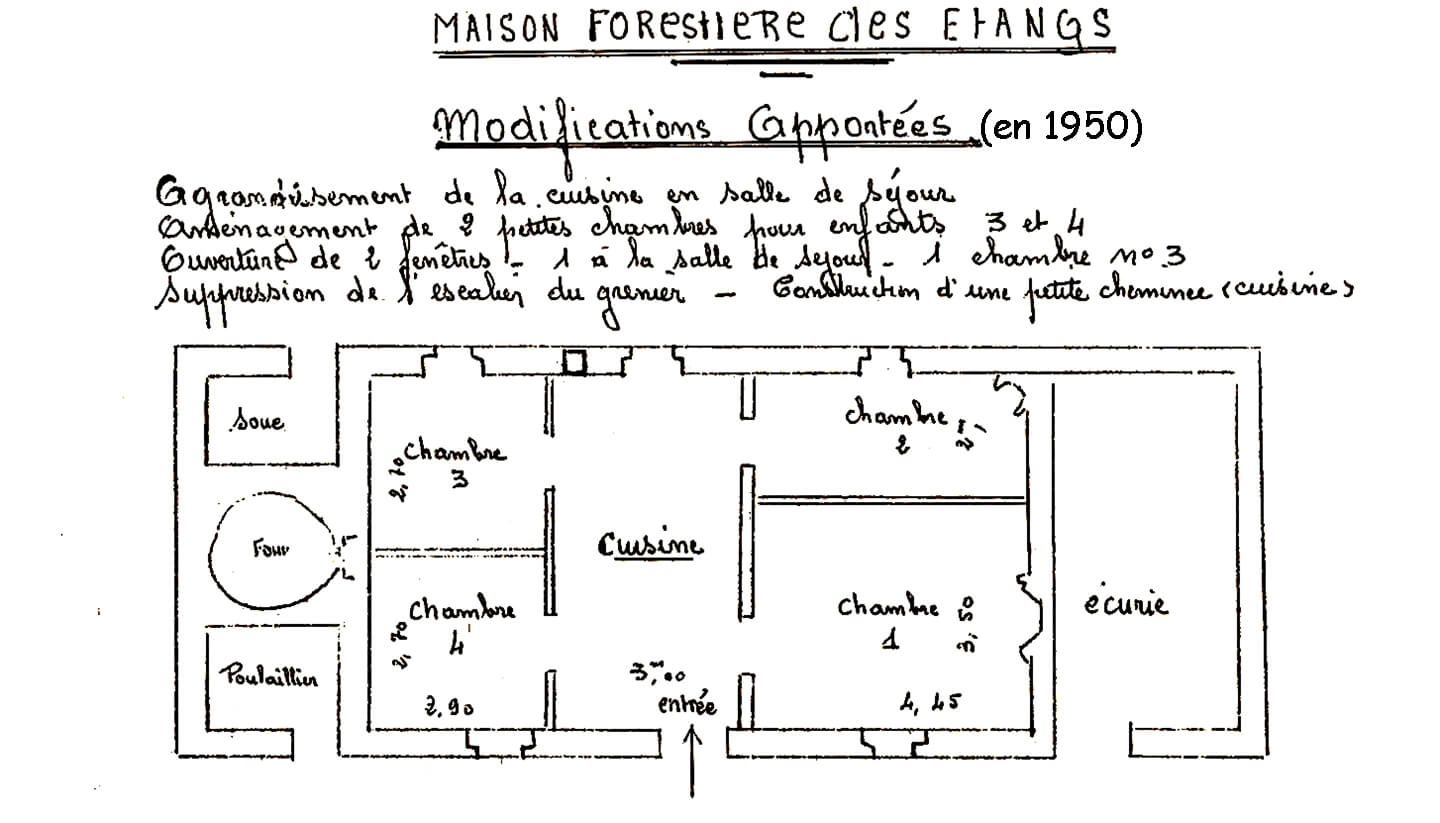 MAISON FORESTIERE des ETANGS
Modifications Apportées (en 1950)
Agrandissement de la cuisine en salle de séjour
Aménagement de 2 petites chambres pour enfants 3 et 4
Ouverture de 2 fenêtres - 1 à la salle de séjour - 1 chambre no 3
Suppression de l'escalier du grenier - Construction d'une petite cheminee (cuisine)
Soue
Chambre
3
2,70
Chambre
2
Four
Cuisine
Chambre
4
2,70
2,90
Chambre
1
3,50
4,45
écurie
Poulaillier
3,m00
entrée